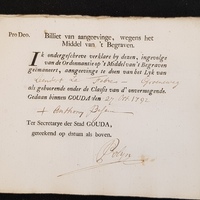 Pro Deo.
Billiet van aangeevinge, wegens het
Middel van 't Begraven.
IK ondergeschreve verklare by deezen, ingevolge
van de Ordonnantie op 't Middel van 't Begraven
geëmaneert, aangeevinge te doen van het Lyk van
als gehoorende onder de Classis van d' onvermogende.
Gedaan binnen GOUDA den 29 Oct. 1792
+ Anthony
Ter Secretarye der Stad GOUDA,
geteekend op datum als boven.